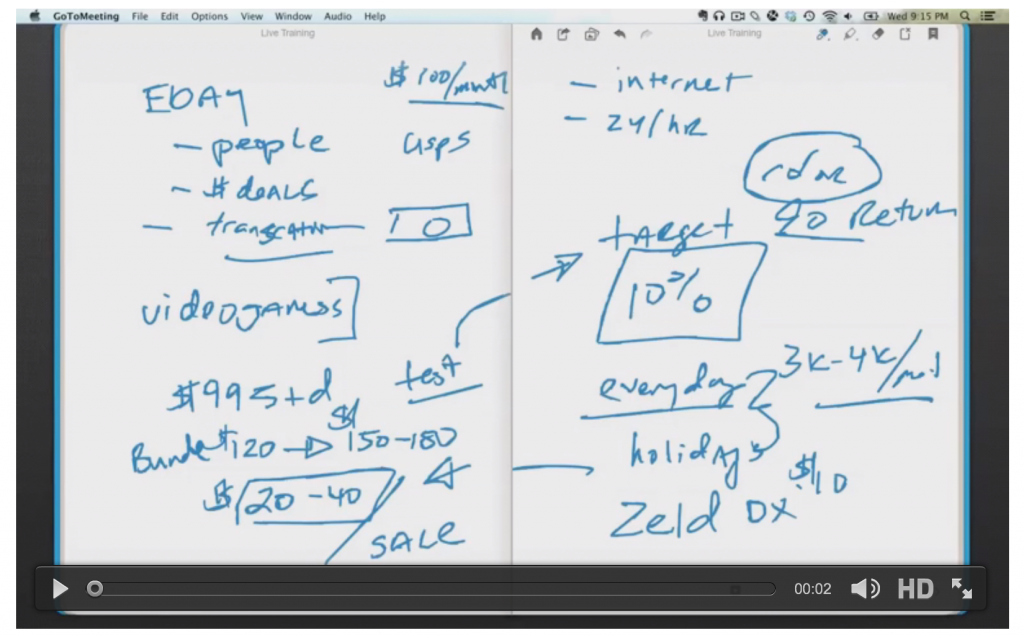 GoToMeeting File Edit Options View Window Audio Help Wed 9:15 PM
Live Training
Live Training
EBAY
$100/month
- people
USPS
- # deals
- transcation
10
videogamess
test
$995+d
$
Bundle $120 → 150-180
$ 20-40
SALE
- internet
- 24/hr
target
90 Return
10%
everyday
3K-4K/
holidays
$10
Zeld DX
00:02 HD